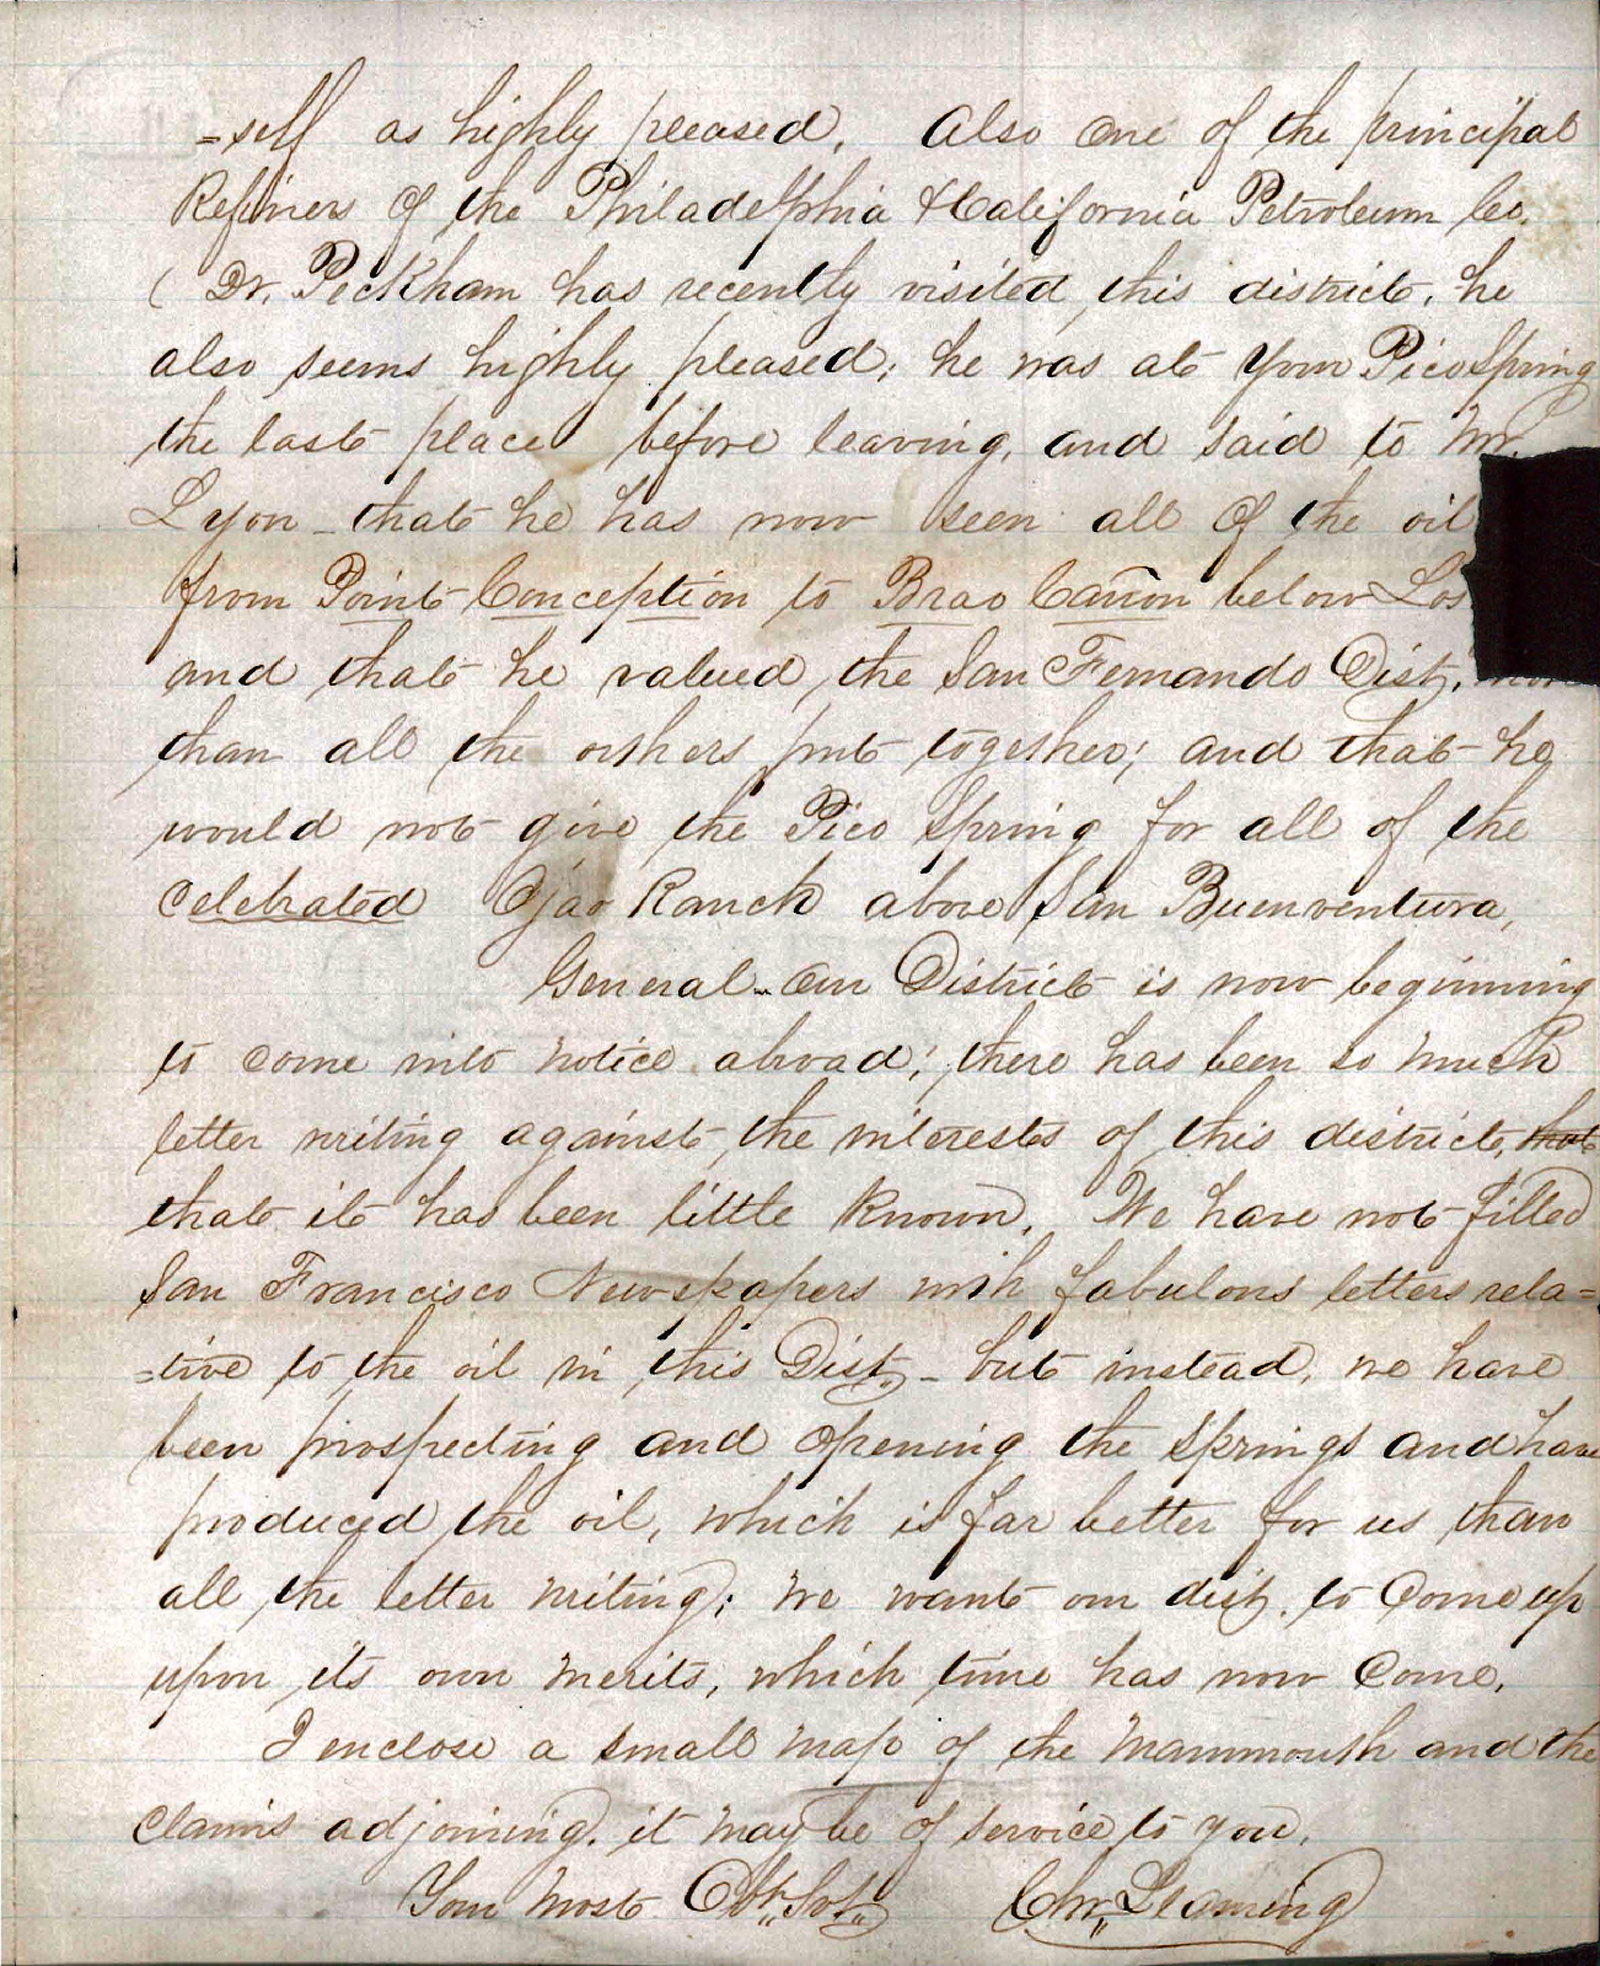 =self as highly pleased. Also one of the principal
Refiners of the Philadelphia & California Petroleum Co.
( Dr. Peckham has recently visited this district, he
also seems highly pleased; he was at your Pico Spring
the last place before leaving, and said to Mr.
Lyon – that he has now seen all of the oil
from Point Conception to Brao Cañon below Los
and that he valued the San Fernando Dist. more
than all the others put together; and that he
would not give the Pico Spring for all of the
Celebrated Ojao Ranch above San Buenventura,
General – Our District is now beginning
to come into notice abroad; there has been so much
letter writing against the interests of this district, that
that it has been little known. We have not filled
San Francisco Newspapers with fabulous letters rela=
=tive to the oil in this Dist. – but instead, we have
been prospecting and opening the Springs and have
produced the oil, which is far better for us than
all the letter writing; We want our dist. to Come up
upon its own merits, which time has now Come.
I enclose a small map of the Mammouth and the
Claims adjoining. it may be of service to you.
Your Most Obt. Svt. Chr. Leaming